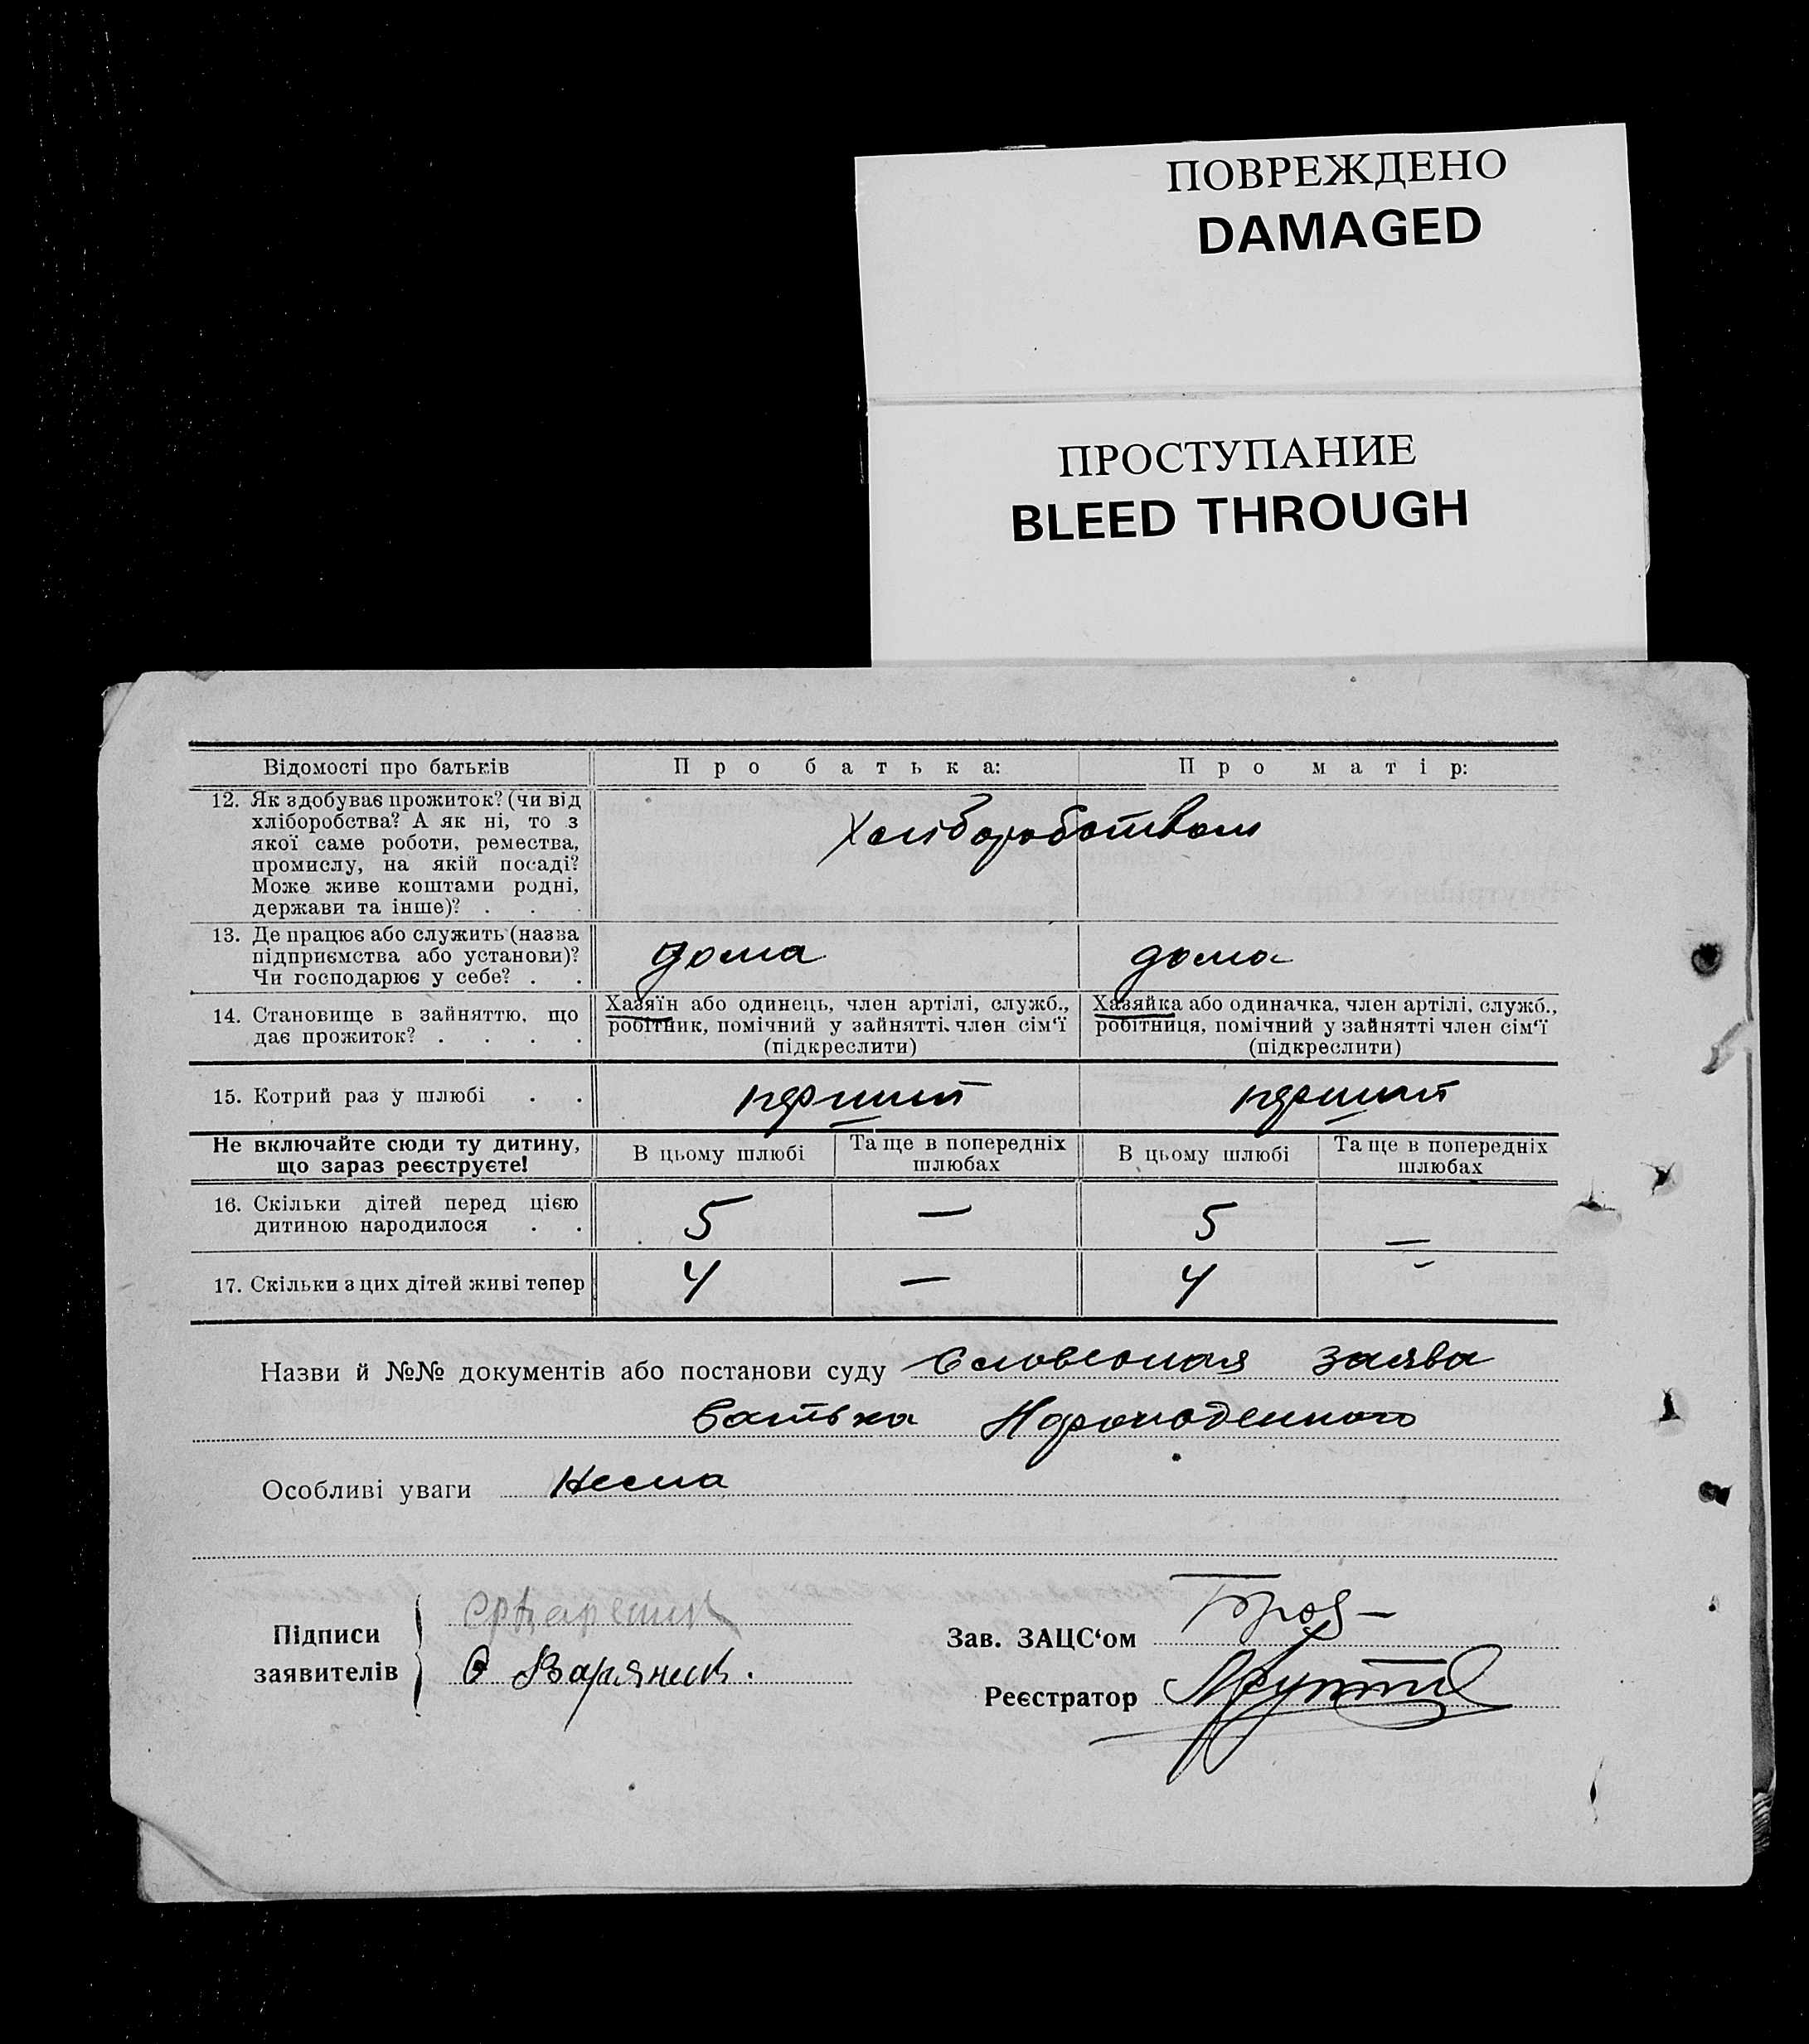 ПОВРЕЖДЕНО
DAMAGED
ПРОСТУПАНИЕ
BLEED THROUGH
Відомості про батьків Про батька: Про матір:
12. Як здобуває прожиток? (чи від
хліборобства? А як ні, то з
якої саме роботи, ремества,
промислу, на якій посаді?
Може живе коштами родні,
держави та інше)? . . .
Хліборобством
13. Де працює або служить (назва
підприємства або установи)?
Чи господарює у себе? . .
дома дома
14. Становище в зайняттю, що
дає прожиток? . . . .
Хазяїн або одинець, член артілі, служб.,
робітник, помічний у зайнятті член сім'ї
(підкреслити)
Хазяйка або одиначка, член артілі, служб.,
робітниця, помічний у зайнятті член сім'ї
(підкреслити)
15. Котрий раз у шлюбі . . перший перший
Не включайте сюди ту дитину,
що зараз реєструєте!
В цьому шлюбі Та ще в попередніх
шлюбах
В цьому шлюбі Та ще в попередніх
шлюбах
16. Скільки дітей перед цією
дитиною народилося . .
5 — 5 —
17. Скільки з цих дітей живі тепер 4 — 4 -
Назви й №№ документів або постанови суду Словесная заява
батька
Особливі уваги Нема
Підписи
заявителів
О Варяник.
Зав. ЗАЦС'ом
Реєстратор